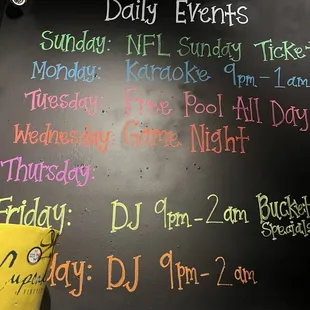 Daily Events
Sunday: NFL Sunday Ticket
Monday: Karaoke 9pm-1am
Tuesday: Free Pool All Day
Wednesday: Game Night
Thursday:
Friday: DJ 9pm-2am Bucket Specials
day: DJ 9pm-2am